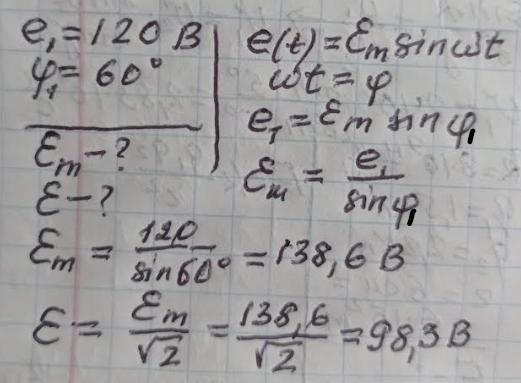 e₁ = 120 В
φ₁ = 60°
Ɛm - ?
Ɛ - ?
e(t) = Ɛm sin ωt
ωt = φ
e₁ = Ɛm sin φ₁
Ɛm = e₁ / sin φ₁
Ɛm = 120 / sin 60° = 138,6 В
Ɛ = Ɛm / √2 = 138,6 / √2 = 98,3 В